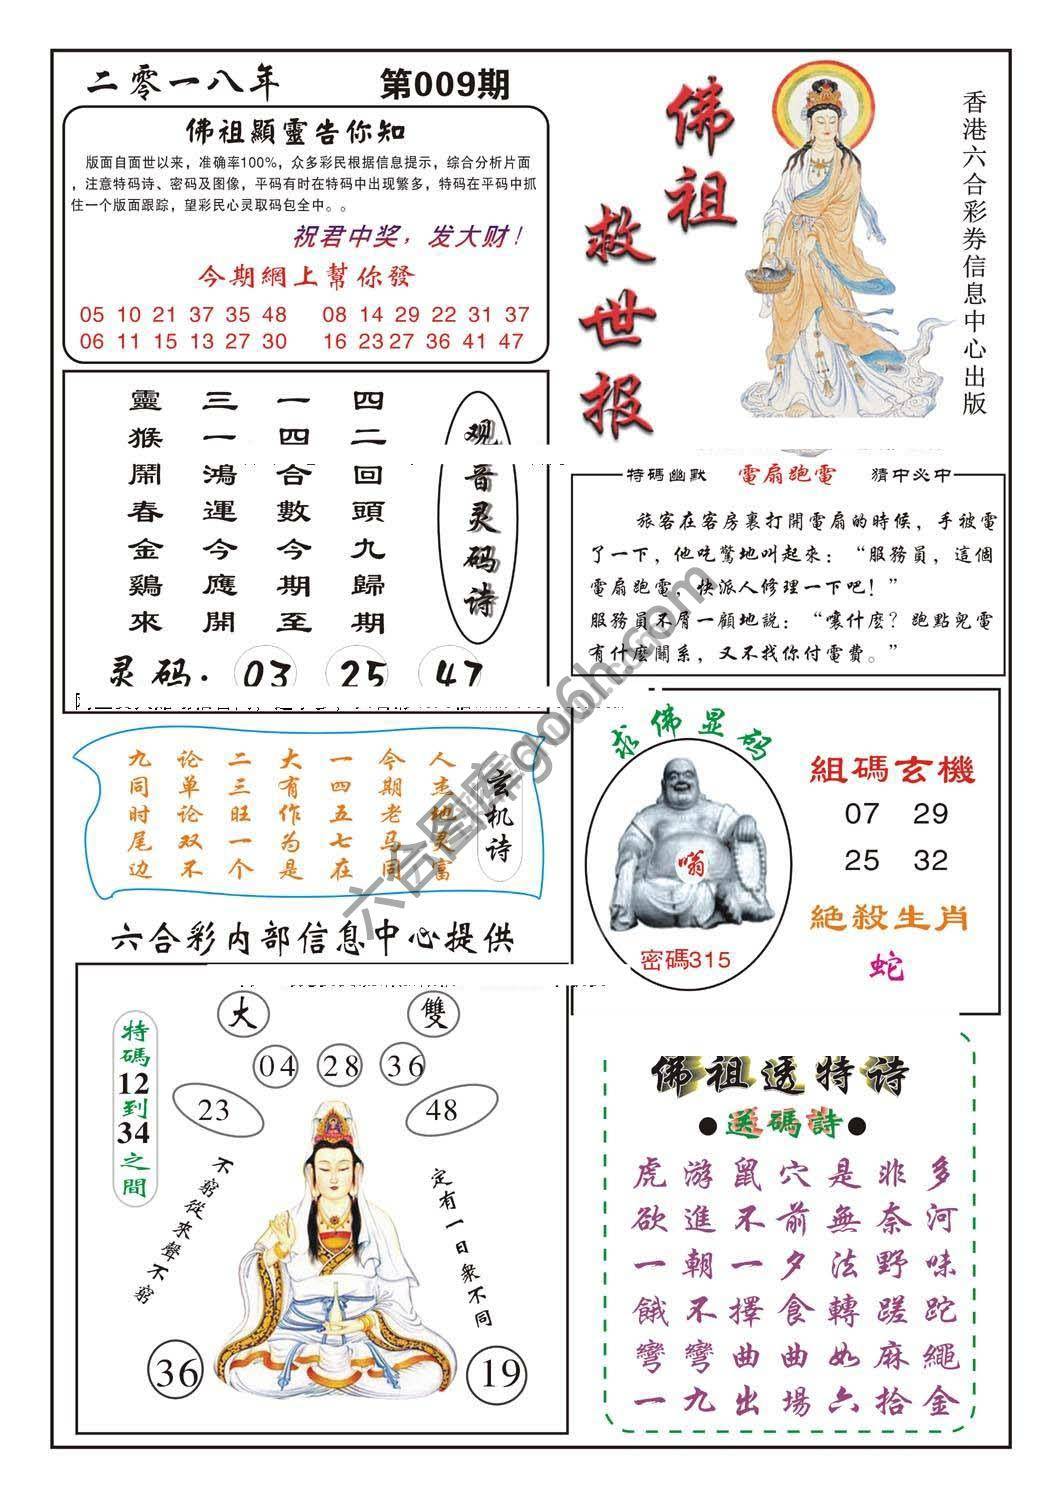 二零一八年
第009期
佛祖顯靈告你知
版面自面世以来，准确率100%，众多彩民根据信息提示，综合分析片面
，注意特码诗、密码及图像，平码有时在特码中出现繁多，特码在平码中抓
住一个版面跟踪，望彩民心灵取码包全中。。
祝君中奖，发大财！
今期網上幫你發
05 10 21 37 35 48 08 14 29 22 31 37
06 11 15 13 27 30 16 23 27 36 41 47
佛祖
救世报
香港六合彩券信息中心出版
靈猴鬧春金鷄來
三一鴻運今應開
一四合數今期至
四二回頭九歸期
观音灵码诗
灵码. 03 25 47
特碼幽默 電扇跑電 猜中必中
旅客在客房裏打開電扇的時候，手被電
了一下，他吃驚地叫起來：“服務員，這個
電扇跑電，快派人修理一下吧！”
服務員不屑一顧地説：“嚷什麽？跑點兒電
有什麽關系，又不找你付電費。”
九同时尾边
论单论双不
二三旺一个
大有作为是
一四五七在
今期老马同
人杰地灵富
玄机诗
六合彩内部信息中心提供
求佛显码
嗡
密碼315
組碼玄機
07 29
25 32
絶殺生肖
蛇
大 雙
04 28 36
23 48
特碼12到34之間
不窮從來聲不窮
定有一日衆不同
36 19
佛祖透特诗
●送碼詩●
虎游鼠穴是非多
欲進不前無奈河
一朝一夕法野味
餓不擇食轉蹉跎
彎彎曲曲如麻繩
一九出場六拾金
六合图库go6h.com